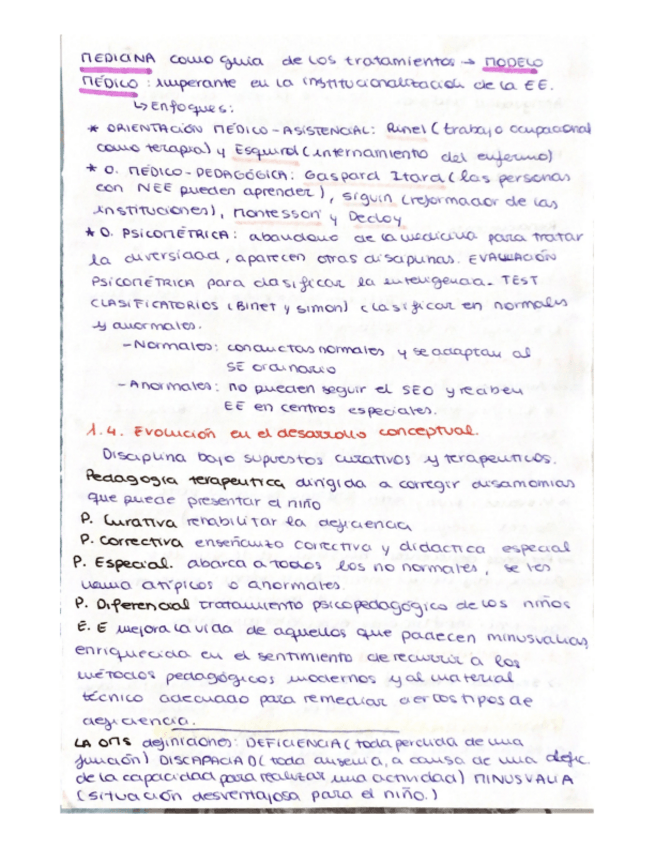 MEDICINA como guía de los tratamientos → MODELO
MÉDICO: imperante en la institucionalización de la EE.
↳ Enfoques:
* ORIENTACIÓN MÉDICO-ASISTENCIAL: Pinel (trabajo ocupacional
como terapia) y Esquirol (internamiento del enfermo)
* O. MÉDICO-PEDAGÓGICA: Gaspard Itard (las personas
con NEE pueden aprender), Siguin (reformador de las
instituciones), Montessori y Decloy
* O. PSICOMÉTRICA: abandono de la medicina para tratar
la diversidad, aparecen otras disciplinas. EVALUACIÓN
PSICOMÉTRICA para clasificar la inteligencia. TEST
CLASIFICATORIOS (Binet y Simon) clasificar en normales
y anormales.
- Normales: conductas normales y se adaptan al
SE ordinario
- Anormales: no pueden seguir el SEO y reciben
EE en centros especiales.
1.4. Evolución en el desarrollo conceptual.
Disciplina bajo supuestos curativos y terapeuticos.
Pedagogía terapeutica dirigida a corregir disarmonias
que puede presentar el niño
P. Curativa rehabilitar la deficiencia
P. Correctiva enseñanza correctiva y didactica especial
P. Especial. abarca a todos los no normales, se les
llama atípicos o anormales.
P. Diferencial tratamiento psicopedagógico de los niños
E. E mejora la vida de aquellos que padecen minusvalias,
enriquecida en el sentimiento de recurrir a los
métodos pedagógicos modernos y al material
técnico adecuado para remediar ciertos tipos de
deficiencia.
LA OMS definiciones: DEFICIENCIA (toda perdida de una
función) DISCAPACIAD (toda ausencia, a causa de una defic.
de la capacidad para realizar una actividad) MINUSVALIA
(situación desventajosa para el niño.)